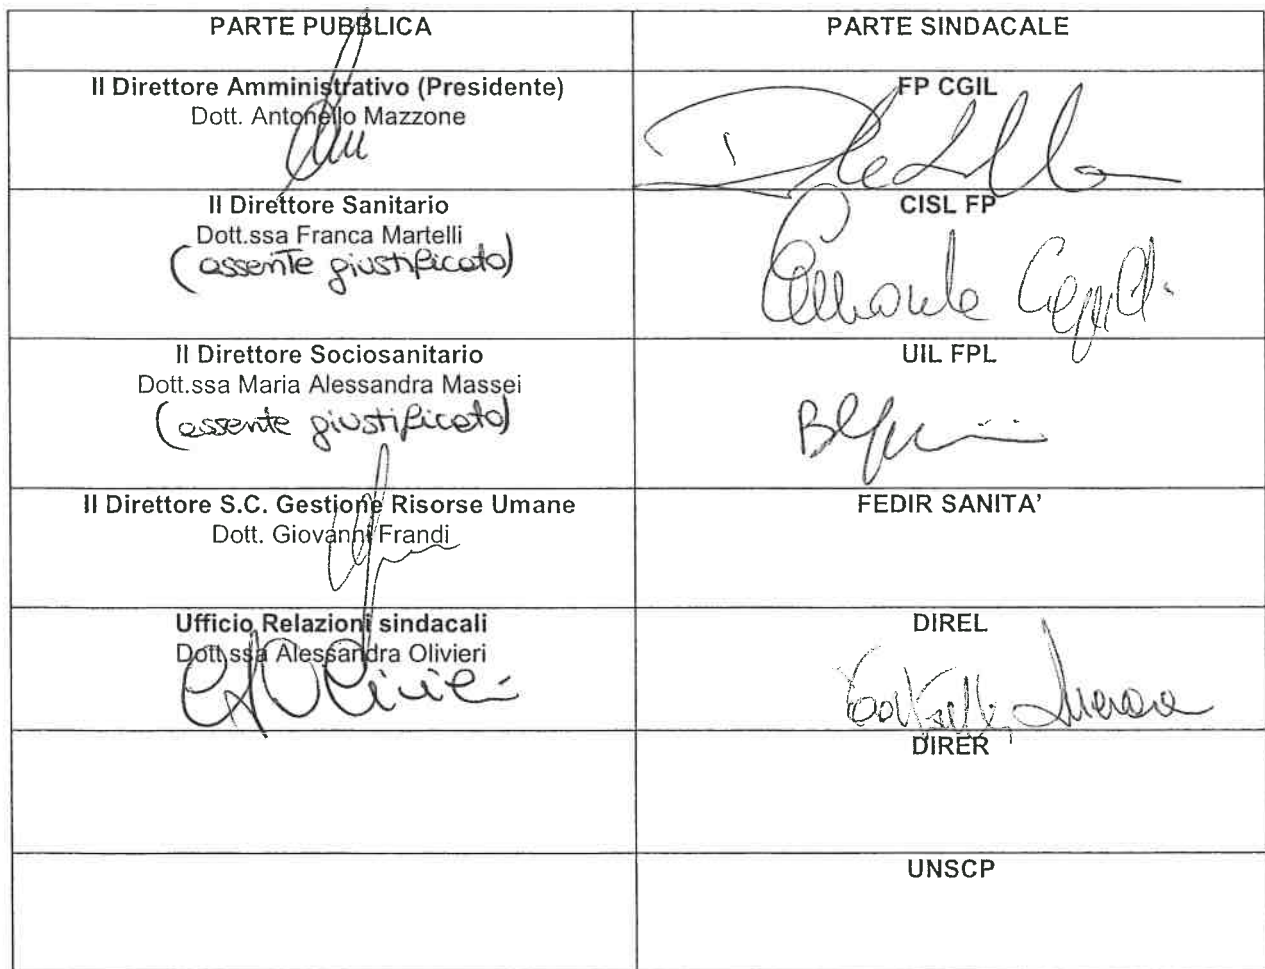 PARTE PUBBLICA
PARTE SINDACALE
Il Direttore Amministrativo (Presidente)
Dott. Antonello Mazzone
FP CGIL
Il Direttore Sanitario
Dott.ssa Franca Martelli
(assente giustificato)
CISL FP
Il Direttore Sociosanitario
Dott.ssa Maria Alessandra Massei
(assente giustificato)
UIL FPL
Il Direttore S.C. Gestione Risorse Umane
Dott. Giovanni Frandi
FEDIR SANITA'
Ufficio Relazioni sindacali
Dott.ssa Alessandra Olivieri
DIREL
DIRER
UNSCP